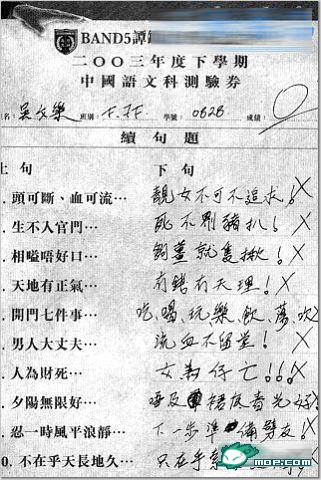 BAND5譚
二〇〇三年度下學期
中國語文科測驗劵
名: 吳文樂 班別: F.7F 學號: 0828 成績: 0
續句題
上句 下句
. 頭可斷、血可流… 靚女不可不追求! X
. 生不入官門… 死不剔豬扒! X
. 相嗌唔好口… 就隻揪! X
. 天地有正氣… 有錢有天理! X
. 開門七件事… 吃、喝、玩、樂、飲、蕩、吹
. 男人大丈夫… 流血不留堂! X
. 人為財死… 女為仔亡!!! X
. 夕陽無限好… 唔及裙底春光好 X
. 忍一時風平浪靜… 下一步準備劈友! X
0. 不在乎天長地久… 只在乎
mop.com